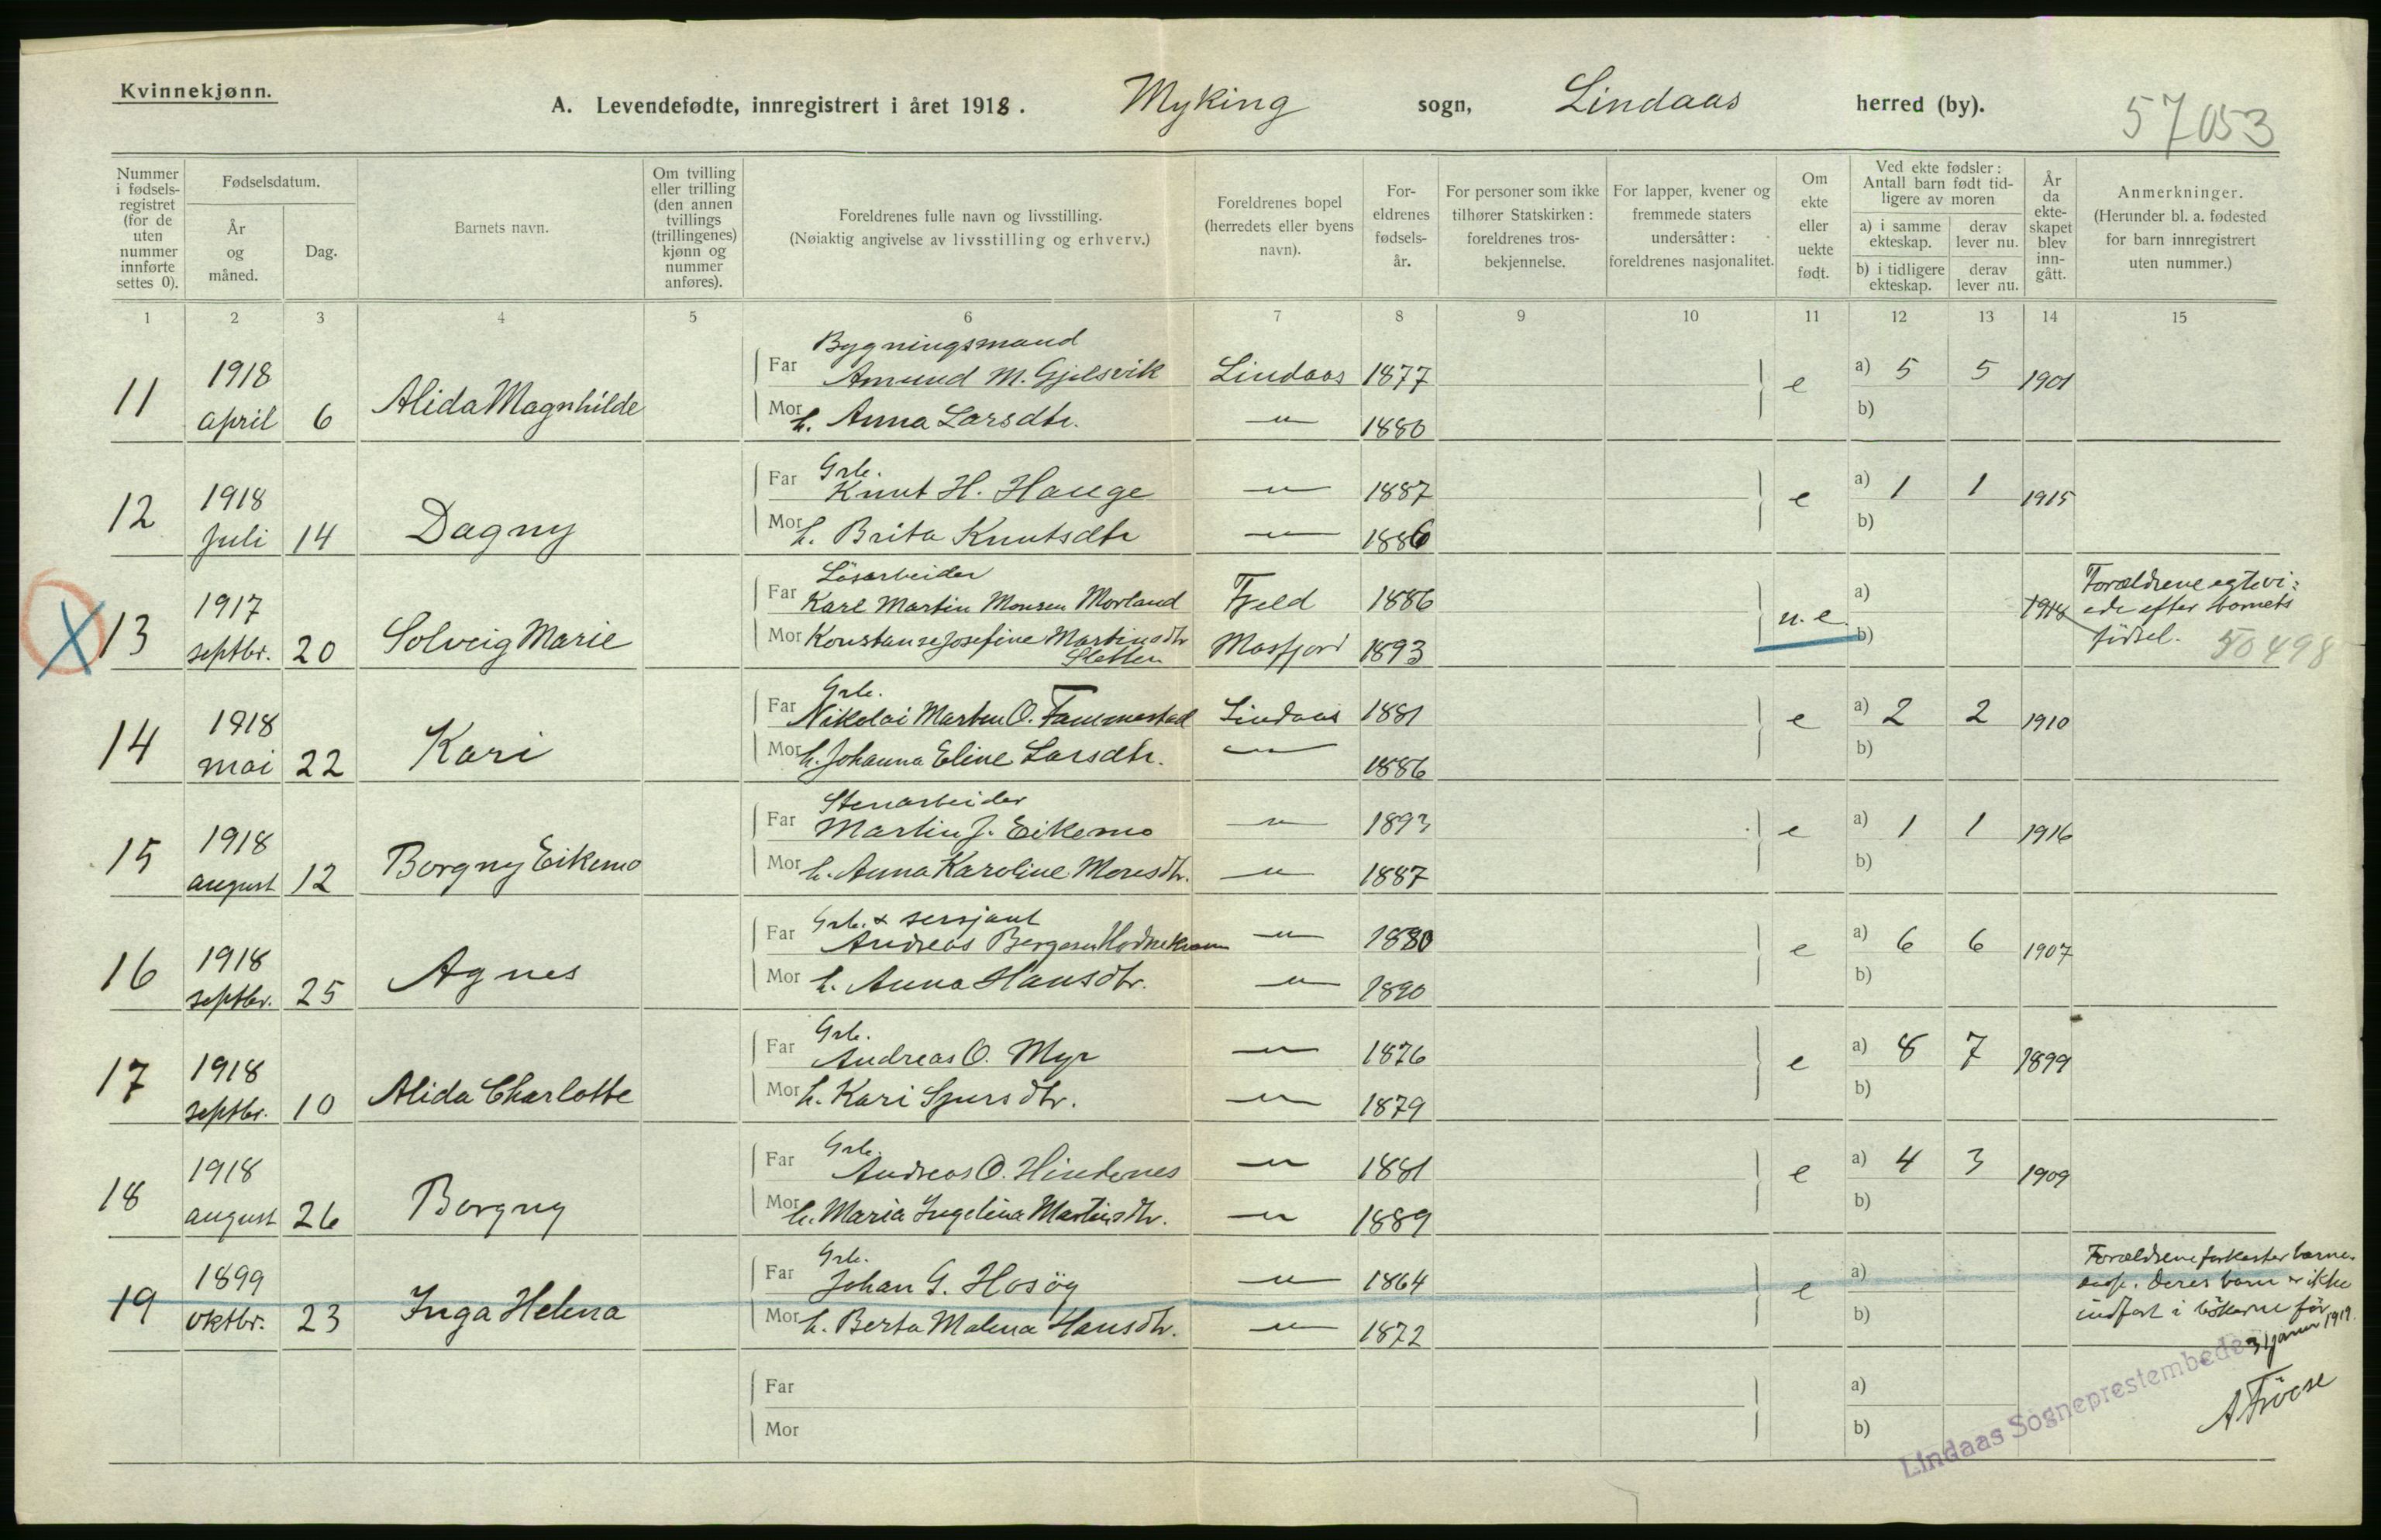 Kvinnekjønn.
A. Levendefødte, innregistrert i året 1918. Myking sogn, Lindaas herred (by).
57053
Nummer i fødsels-registret (for de uten nummer innførte settes 0).
Fødselsdatum.
År og måned.
Dag.
Barnets navn.
Om tvilling eller trilling (den annen tvillings (trillingenes) kjønn og nummer anføres).
Foreldrenes fulle navn og livsstilling.
(Nøiaktig angivelse av livsstilling og erhverv.)
Foreldrenes bopel (herredets eller byens navn).
For-eldrenes fødsels-år.
For personer som ikke tilhører Statskirken: foreldrenes tros-bekjennelse.
For lapper, kvener og fremmede staters undersåtter: foreldrenes nasjonalitet.
Om ekte eller uekte født.
Ved ekte fødsler: Antall barn født tid-ligere av moren
a) i samme ekteskap.
derav lever nu.
b) i tidligere ekteskap.
derav lever nu.
År da ekte-skapet blev inn-gått.
Anmerkninger.
(Herunder bl. a. fødested for barn innregistrert uten nummer.)
1 2 3 4 5 6 7 8 9 10 11 12 13 14 15
Bygningsmand
11 1918 april 6 Alida Magnhilde
Far Amund M. Gjelsvik Lindaas 1877 e a) 5 5 1901
Mor h. Anna Larsdtr. — " — 1880 b)
Grb.
12 1918 Juli 14 Dagny
Far Knut H. Hauge — " — 1887 e a) 1 1 1915
Mor h. Brita Knutsdtr — " — 1886 b)
Løsarbeider
X 13 1917 septbr. 20 Solveig Marie
Far Karl Martin Monsen Morland Fjeld 1886 u.e. a) 1918
Mor Konstanse Josefine Martinsdtr Sletten Masfjord 1893 b)
Forældrene egtevi-
ede efter barnets
fødsel. 50498
Grb.
14 1918 mai 22 Kari
Far Nikolai Marten O. Fammestad Lindaas 1881 e a) 2 2 1910
Mor h. Johanna Eline Larsdtr. — " — 1886 b)
Stenarbeider
15 1918 august 12 Borgny Eikemo
Far Martin J. Eikemo — " — 1893 e a) 1 1 1916
Mor h. Anna Karoline Monsdtr. — " — 1887 b)
Grb. & sersjant
16 1918 septbr. 25 Agnes
Far Andreas Bergesen — " — 1880 e a) 6 6 1907
Mor h. Anna Hansdtr. — " — 1890 b)
Grb.
17 1918 septbr. 10 Alida Charlotte
Far Andreas O. Myr — " — 1876 e a) 8 7 1899
Mor h. Kari Sjursdtr. — " — 1879 b)
Grb.
18 1918 august 26 Borgny
Far Andreas O. Hindenes — " — 1881 e a) 4 3 1909
Mor h. Maria Ingelina Martinsdtr. — " — 1889 b)
Grb.
19 1899 oktbr. 23 Inga Helena
Far Johan G. Hosøy — " — 1864 e a)
Mor h. Berta Malena Hansdtr. — " — 1872 b)
Forældrene forkaster barne-
daap. Deres barn er ikke
indført i bøkerne før
31 januar 1919.
Far a)
Mor b)
Lindaas Sogneprestembede